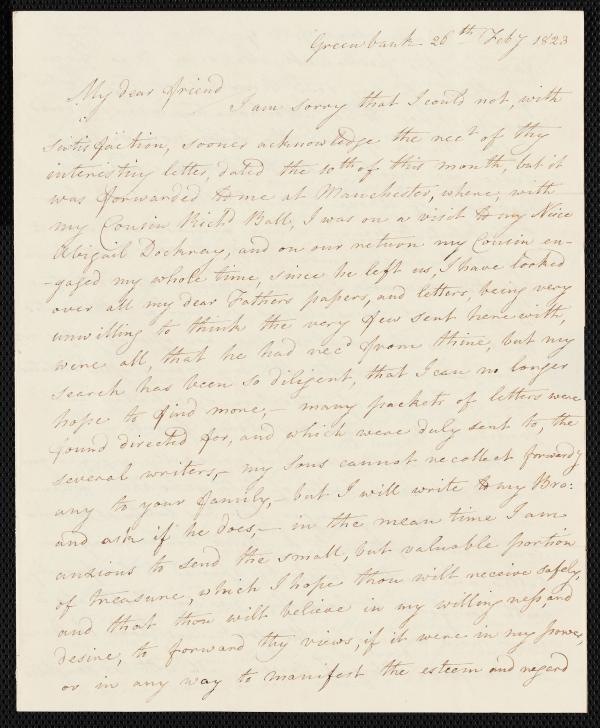 Greenbank 26th Feby 1823
My dear friend
I am sorry that I could not, with
satisfaction, sooner acknowledge the rect of thy
interesting letter, dated the 10th of this month, but it
was forwarded to me at Manchester, where, with
my Cousin Richd Ball, I was on a visit to my Niece
Abigail Dockray, and on our return my Cousin en-
-gaged my whole time, since he left us, I have looked
over all my dear Fathers papers, and letters, being very
unwilling to think the very few sent herewith,
were all, that he had recd from thine, but my
search has been so diligent, that I can no longer
hope to find more,- many packets of letters were
found directed for, and which were duly sent to, the
several writers,- my sons cannot recollect forwardg
any to your family,- but I will write to my Bro:
and ask if he does,- in the mean time I am
anxious to send the small, but valuable portion
of treasure, which I hope thou wilt receive safely,
and that thou wilt believe in my willingness, and
desire, to forward thy views, if it were in my power,
or in any way to manifest the esteem and regard